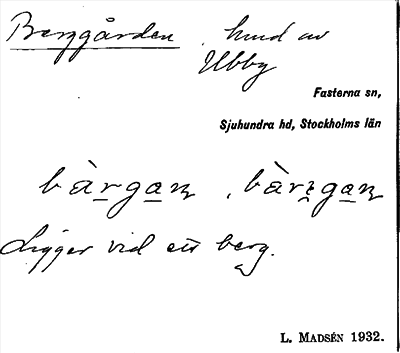 Berggården, hmd av
Ubby
Fasterna sn,
Sjuhundra hd, Stockholms län
bàrgan, bàrgan
Ligger vid ett berg.
L. MADSÉN 1932.